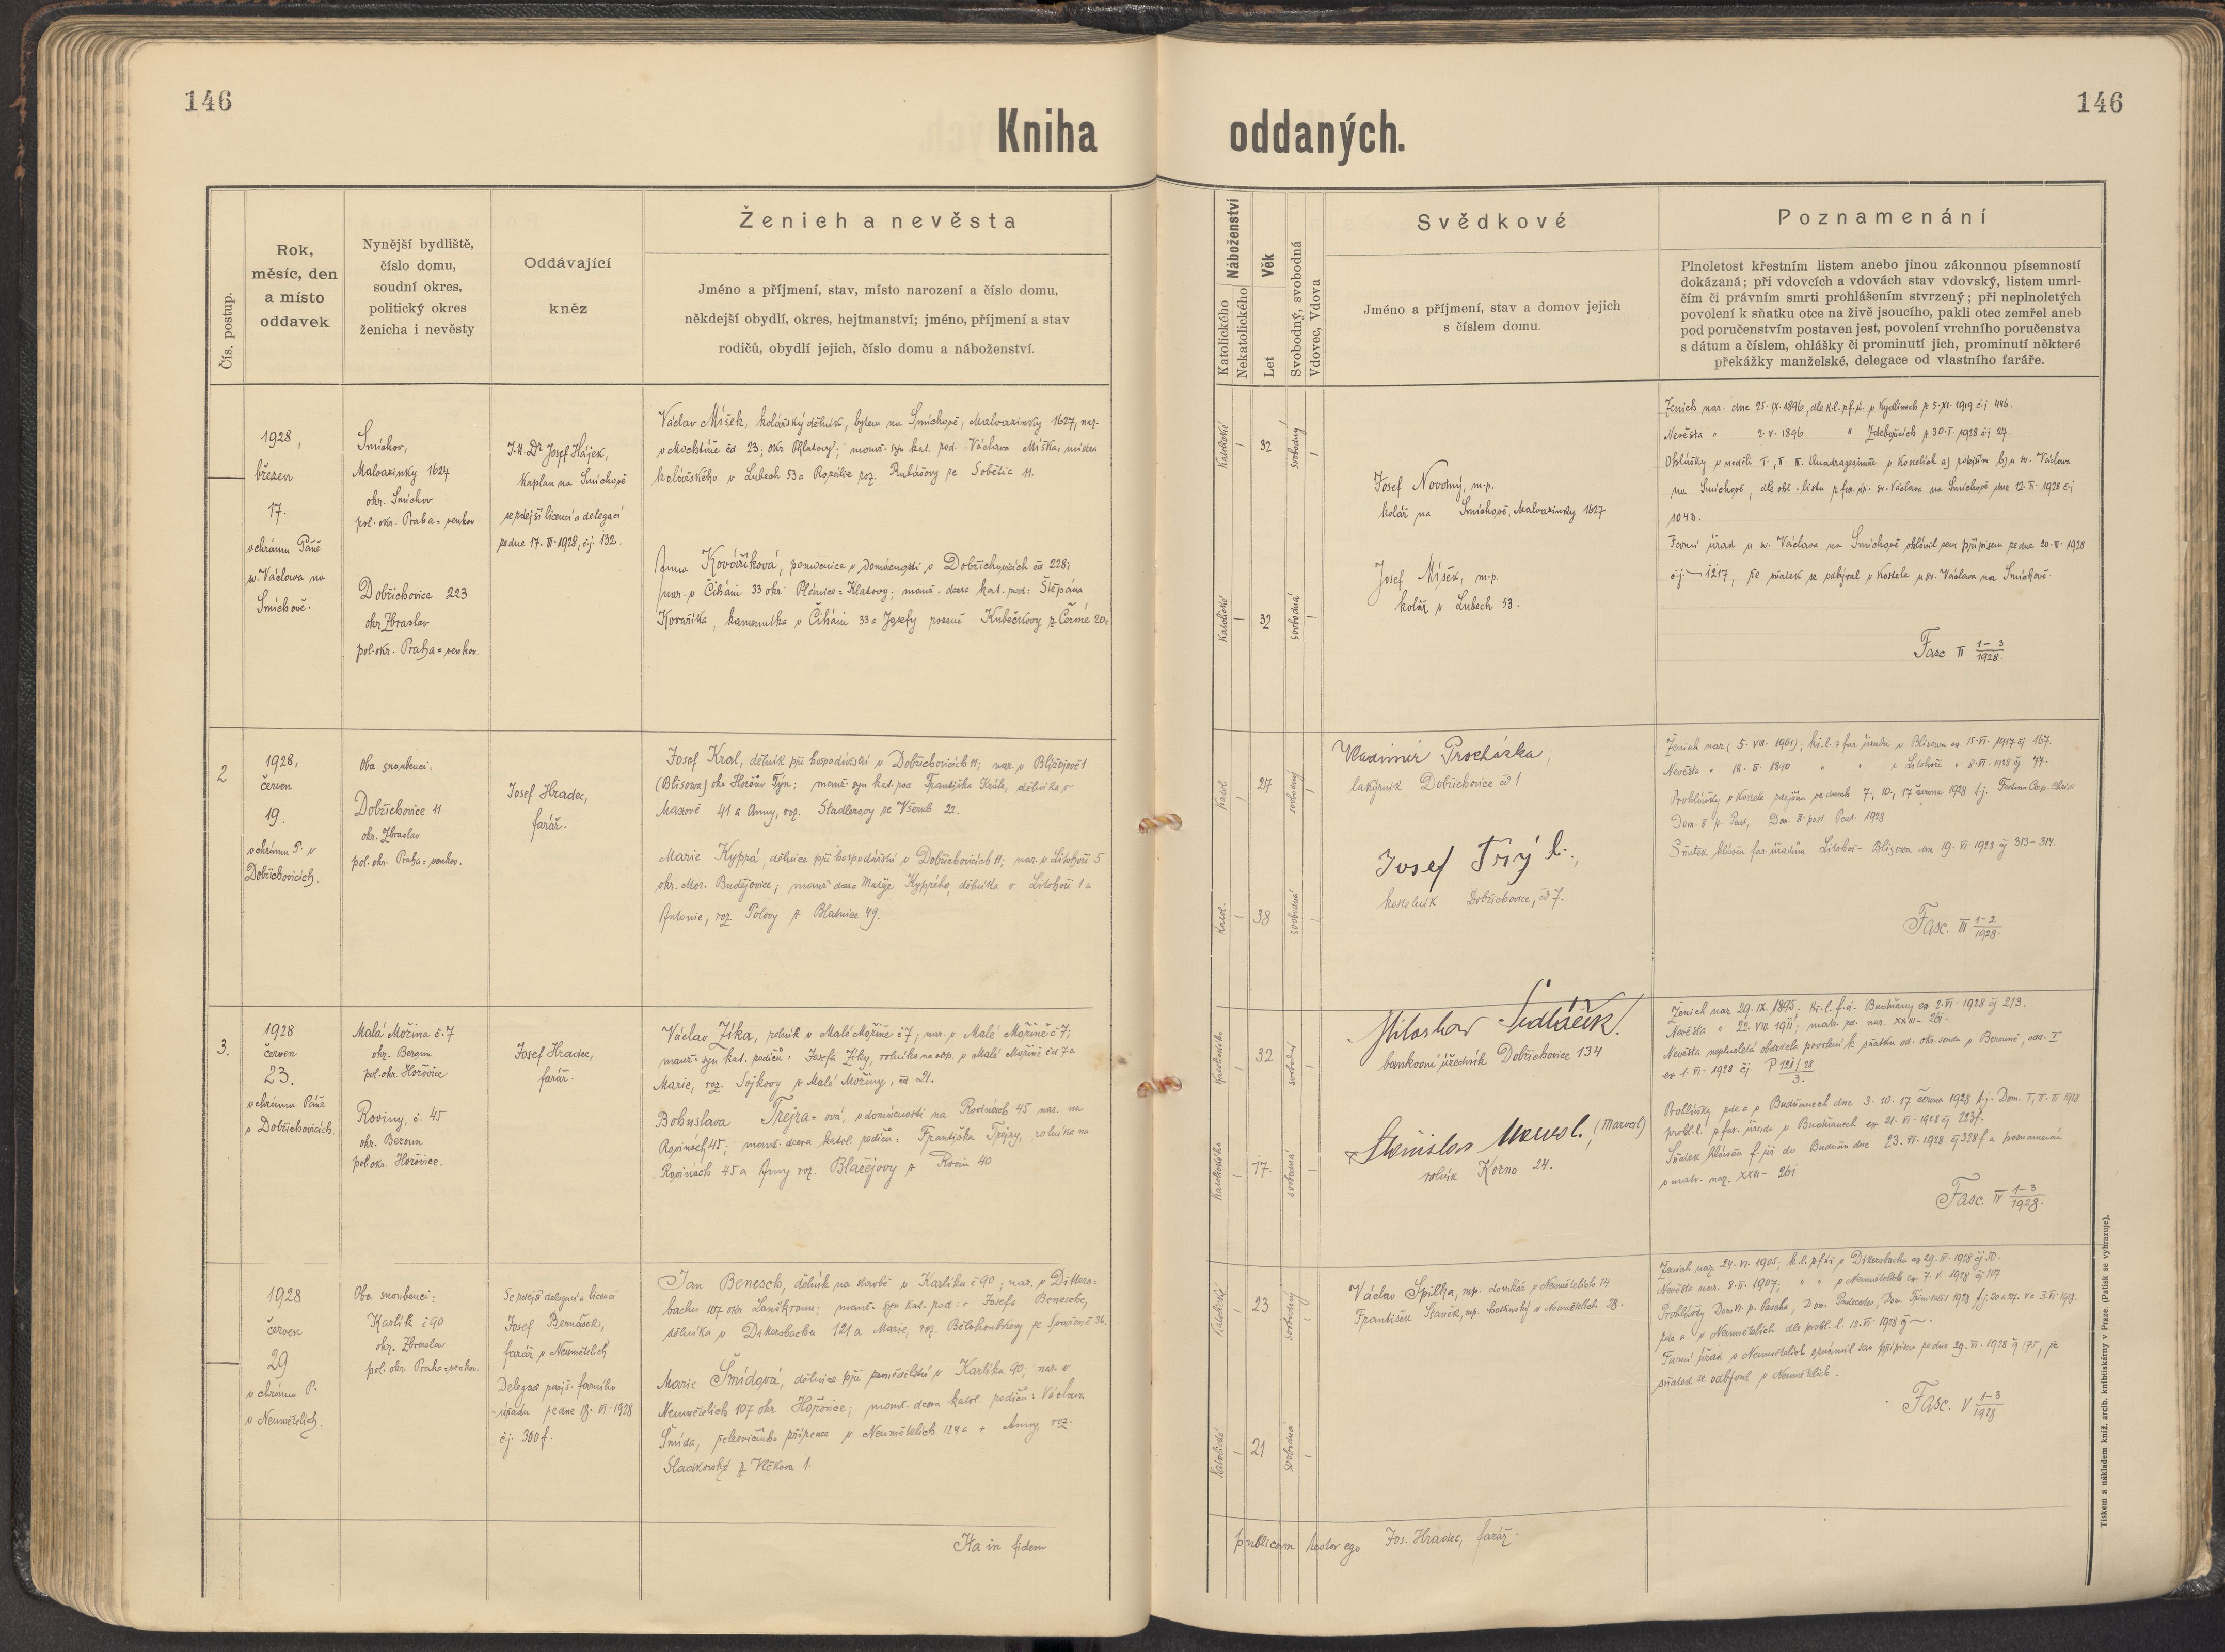 146
146
Kniha oddaných.
Čís. postup.
Rok,
měsíc, den
a místo
oddavek
Nynější bydliště,
číslo domu,
soudní okres,
politický okres
ženicha i nevěsty
Oddávající
kněz
Ženich a nevěsta
Jméno a příjmení, stav, místo narození a číslo domu,
někdejší obydlí, okres, hejtmanství; jméno, příjmení a stav
rodičů, obydlí jejich, číslo domu a náboženství.
Náboženství
Katolického
Nekatolického
Věk
Let
Svobodný, svobodná
Vdovec, Vdova
Svědkové
Jméno a příjmení, stav a domov jejich
s číslem domu.
Poznamenání
Plnoletost křestním listem anebo jinou zákonnou písemností
dokázaná; při vdovcích a vdovách stav vdovský, listem umrl-
čím či právním smrti prohlášením stvrzený; při neplnoletých
povolení k sňatku otce na živě jsoucího, pakli otec zemřel aneb
pod poručenstvím postaven jest, povolení vrchního poručenstva
s dátum a číslem, ohlášky či prominutí jich, prominutí některé
překážky manželské, delegace od vlastního faráře.
1928,
březen
17.
v chrámu Páně
sv. Václava na
Smíchově.
Smíchov,
Malvazinky 1624
okr. Smíchov
pol. okr. Praha=venkov
Dobřichovice 223
okr Zbraslav
pol. okr. Praha=venkov.
Josef Hájek,
kaplan na Smíchově
se zdejší licencí a delegací
ze dne 17. III. 1928, čj. 132.
Václav Míšek, kolářský dělník, bytem na Smíchově, Malvazinky 1627, nar.
v Mochtíně čd 23, okr Klatovy; manž. syn kat. rod. Václava Míška, mistra
kolářského v Lubech 53 a Rozálie roz. Rubášovy ze Sobětic 11.
Anna Kovaříková, pomocnice v domácnosti v Dobřichovicích čd 228;
nar. v Číháni 33 okr. Plánice=Klatovy; manž. dcera kat. rod. Štěpána
Kovaříka, kameníka v Číháni 33 a Josefy rozené Kubečkovy z Čermé 20.
Katolické
32
svobodný
Katolické
32
svobodná
Josef Novotný, m.p.
kolář na Smíchově, Malvazinky 1627
Josef Míšek, m.p.
kolář v Lubech 53.
Ženich nar. dne 25. IX. 1896, dle k.l. f. ú. v Kydlinech z 5. XI. 1919 čj 446.
Nevěsta " 2. V. 1896 " Zdebořicích z 30. I. 1928 čj 27.
Ohlášky v neděli I., II. III. Quadragesimae v kostelích a) zdejším b) u sv. Václava
na Smíchově, dle ohl. listu z far. úř. sv. Václava na Smíchově dne 12. III. 1928 čj
1043.
Farní úřad u sv. Václava na Smíchově oblávil sem přípisem ze dne 20. III. 1928
čj. 1217, že sňatek se odbýval v kostele u sv. Václava na Smíchově.
Fasc II 1-3
1928.
2
1928,
červen
19.
v chrámu P. v
Dobřichovicích.
Oba snoubenci:
Dobřichovice 11
okr. Zbraslav
pol. okr. Praha=venkov.
Josef Hradec,
farář.
Josef Král, dělník při hospodářství v Dobřichovicích 11; nar. v Blížejově 1
(Blisowa) okr Horšův Týn; manž. syn kat. rod Františka Krále, dělníka v
Maxově 41 a Anny, roz. Stadlerovy ze Všerub 22.
Marie Kyprá, dělnice při hospodářství v Dobřichovicích 11; nar. v Litohoři 5
okr. Mor. Budějovice; manž dcera Matěje Kyprého, dělníka v Litohoři 1 a
Antonie, roz. Polovy z Blatnice 49.
Katol
27
svobodný
Katol.
38
svobodná
Vladimír Procházka,
lakýrník Dobřichovice čd 1
Josef Trýl.,
kostelník Dobřichovice, čd 7.
Ženich nar. (5. VIII. 1901); kř. l. z far. úřadu v Blisowa ex 15. VI. 1917 čj 167.
Nevěsta " 18. II. 1890 " " v Litohoři " 8. VI. 1928 čj 77.
Prohlášky v kostele zdejším ve dnech 7., 10., 17 června 1928 t.j. Festum Corp. Christi
Dom. II p. Pent., Dom. III post Pent. 1928
Sňatek hlášen far. úřadům Litohoř - Blisowa dne 19. VI. 1928 čj 313-314.
Fasc. III 1-2
1928.
3.
1928
červen
23.
v chrámu Páně
v Dobřichovicích.
Malá Mořina č. 7
okr. Beroun
pol. okr. Hořovice
Roviny, č. 45
okr. Beroun
pol. okr. Hořovice.
Josef Hradec,
farář.
Václav Zíka, rolník v Malé Mořině č 7; nar. v Malé Mořině č 7;
manž. syn kat. rodičů: Josefa Zíky, rolníka na odp. v Malé Mořině čd 7 a
Marie, roz. Sojkovy z Malé Mořiny, čd 21.
Bohuslava Trejra=ová, v domácnosti na Rovinách 45 nar. na
Rovinách 45; manž. dcera katol. rodičů: Františka Trejry, rolníka na
Rovinách 45 a Anny roz. Blažejovy z Rovin 40
Katolického
32
svobodný
Katolického
17.
svobodná
Miloslav Sedláček.
bankovní úředník Dobřichovice 134
Stanislav Marvol., (Marvol)
rolník Kozno 24.
Ženich nar. 29. IX. 1895. Kř. l. f. ú. Budňany ex 2. VI. 1928 čj 213.
Nevěsta " 22. VIII. 1911; matr. zd. nar. XXII - 261.
Nevěsta neplnoletá obdržela povolení k sňatku od. okr. soudu v Berouně, odd. I
ex 1. VI. 1928 čj. P 121/28
3.
Prohlášky zde a v Budňanech dne 3. 10. 17 června 1928 t.j. Dom. I, II. III 1928
prohl. l. z far. úřadu v Budňanech ex 21. VI. 1928 čj 223f.
Sňatek hlášen f. úř do Budňan dne 23. VI. 1928 čj 328f a poznamenán
v matr. nar. XXII - 261
Fasc. IV 1-3
1928.
1928
červen
29
v chrámu P.
v Neumětelích.
Oba snoubenci:
Karlík č 90
okr. Zbraslav
pol. okr. Praha=venkov.
Se zdejší delegací a licencí
Josef Bernášek,
farář v Neumětelích
Delegace zdejš. farního
úřadu ze dne 18. VI. 1928
čj. 300f.
Jan Benesch, dělník na stavbě v Karlíku č 90; nar. v Ditters=
bachu 107 okr Lanškroun; manž. syn kat. rod.: Josefa Benesche,
dělníka v Dittersbachu 121 a Marie, roz. Bělohoubkovy ze 36.
Marie Šmídová, dělnice při zemědělství v Karlíku 90; nar. v
Neumětelích 107 okr Hořovice; manž. dcera katol. rodičů: Václava
Šmída, železničního zřízence v Neumětelích 124 a + Anny, roz.
Sladkovské z Vlčkova 1.
Katolický
23
svobodný
Katolické
21
svobodná
Václav Spilka, mp. domkář v Neumětelích 74
František Staněk, mp. hostinský v Neumětelích 38.
Ženich nar. 24. VI. 1905, k.l. z f úř v Dittersbachu ex 29. IV. 1928 čj 50.
Nevěsta nar. 8. II. 1907; " " v Neumětelích ex 7. V. 1928 čj 107
Prohlášky Dom VI. p. Pascha, Dom. Pentecostes, Dom. Trinitatis 1928 t.j. 20 a 27. V a 3. VI. 1928.
zde a v Neumětelích dle prohl. l. 12. VI. 1928 čj —.
Farní úřad v Neumětelích oznámil sem přípisem ze dne 29. VI. 1928 čj 175, že
sňatek se odbýval v Neumětelích.
Fasc. V 1-3
1928
Ita in fidem publicam testor ego Jos. Hradec, farář.
Tiskem a nákladem kníž. arcib. knihtiskárny v Praze. (Patisk se vyhrazuje).